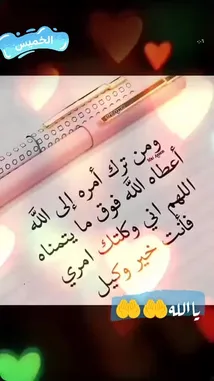 الخميس
ومن ترك أمره إلى الله
أعطاه الله فوق ما يتمناه
اللهم اني وكلتك امري
فأنت خير وكيل
يا الله